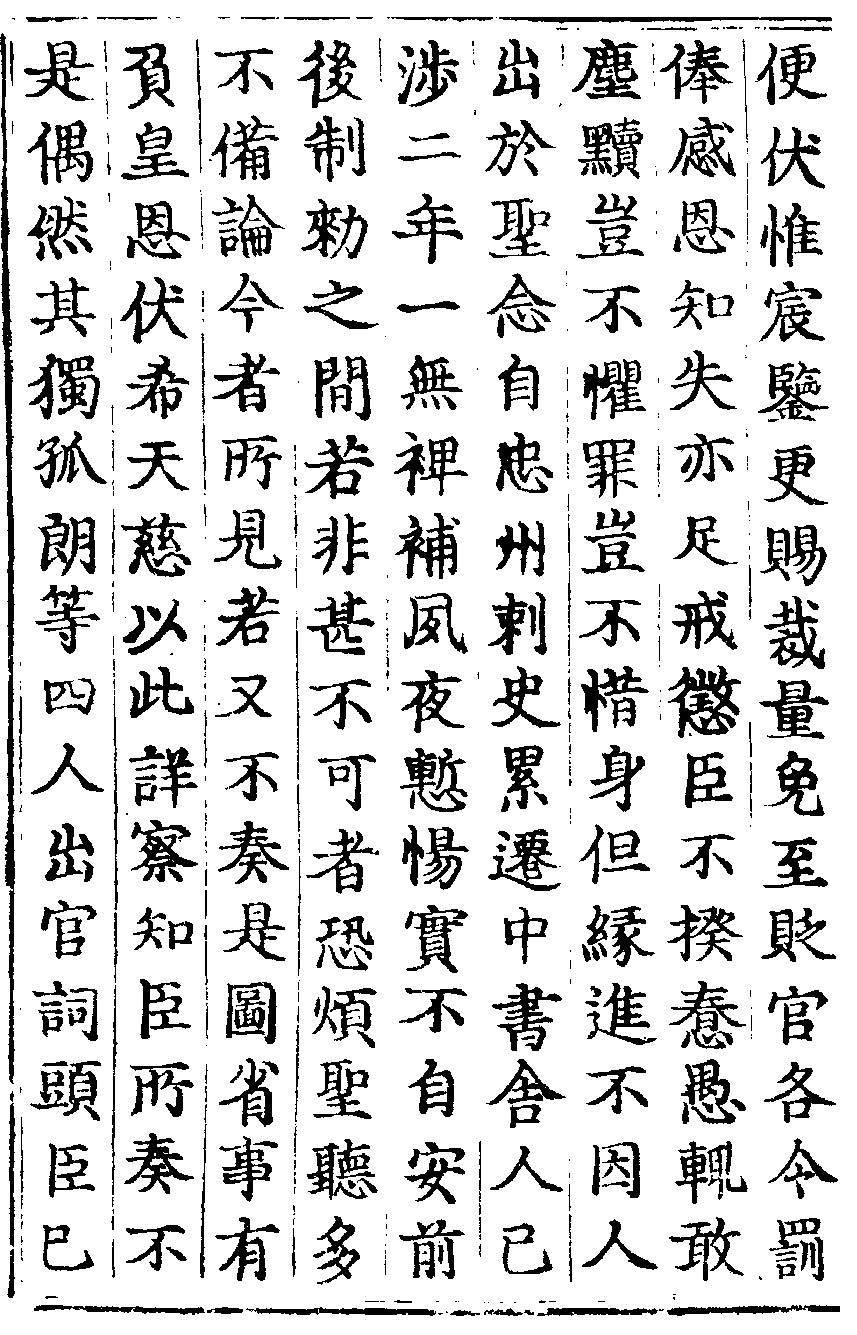 便伏惟宸鑒更賜裁量免至貶官各令罰
俸感恩知失亦足戒懲臣不揆惷愚輒敢
塵黷豈不懼罪豈不惜身但緣進不因人
出於聖念自忠州刺史累遷中書舍人已
涉二年一無裨補夙夜慙惕實不自安前
後制勑之間若非甚不可者恐煩聖聽多
不備論今者所見若又不奏是圖省事有
負皇恩伏希天慈以此詳察知臣所奏不
是偶然其獨孤朗等四人出官詞頭臣已